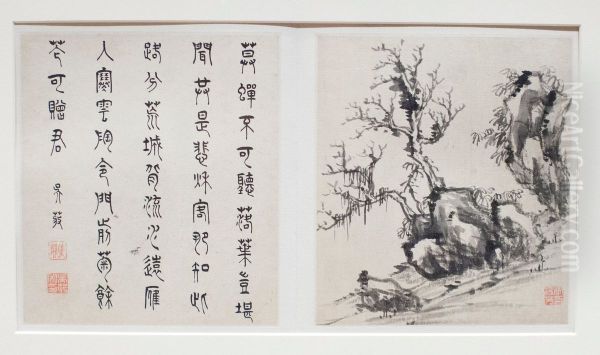 莫蟬不可聽落葉豈堪
聞共是悲秌客那知此
路分荒城背流水遠雁
入寒雲陶令門前菊餘
花可贈君
NiceArtGallery.com